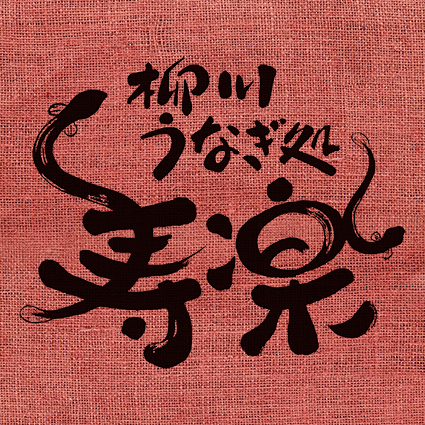 柳川
うなぎ処
寿楽